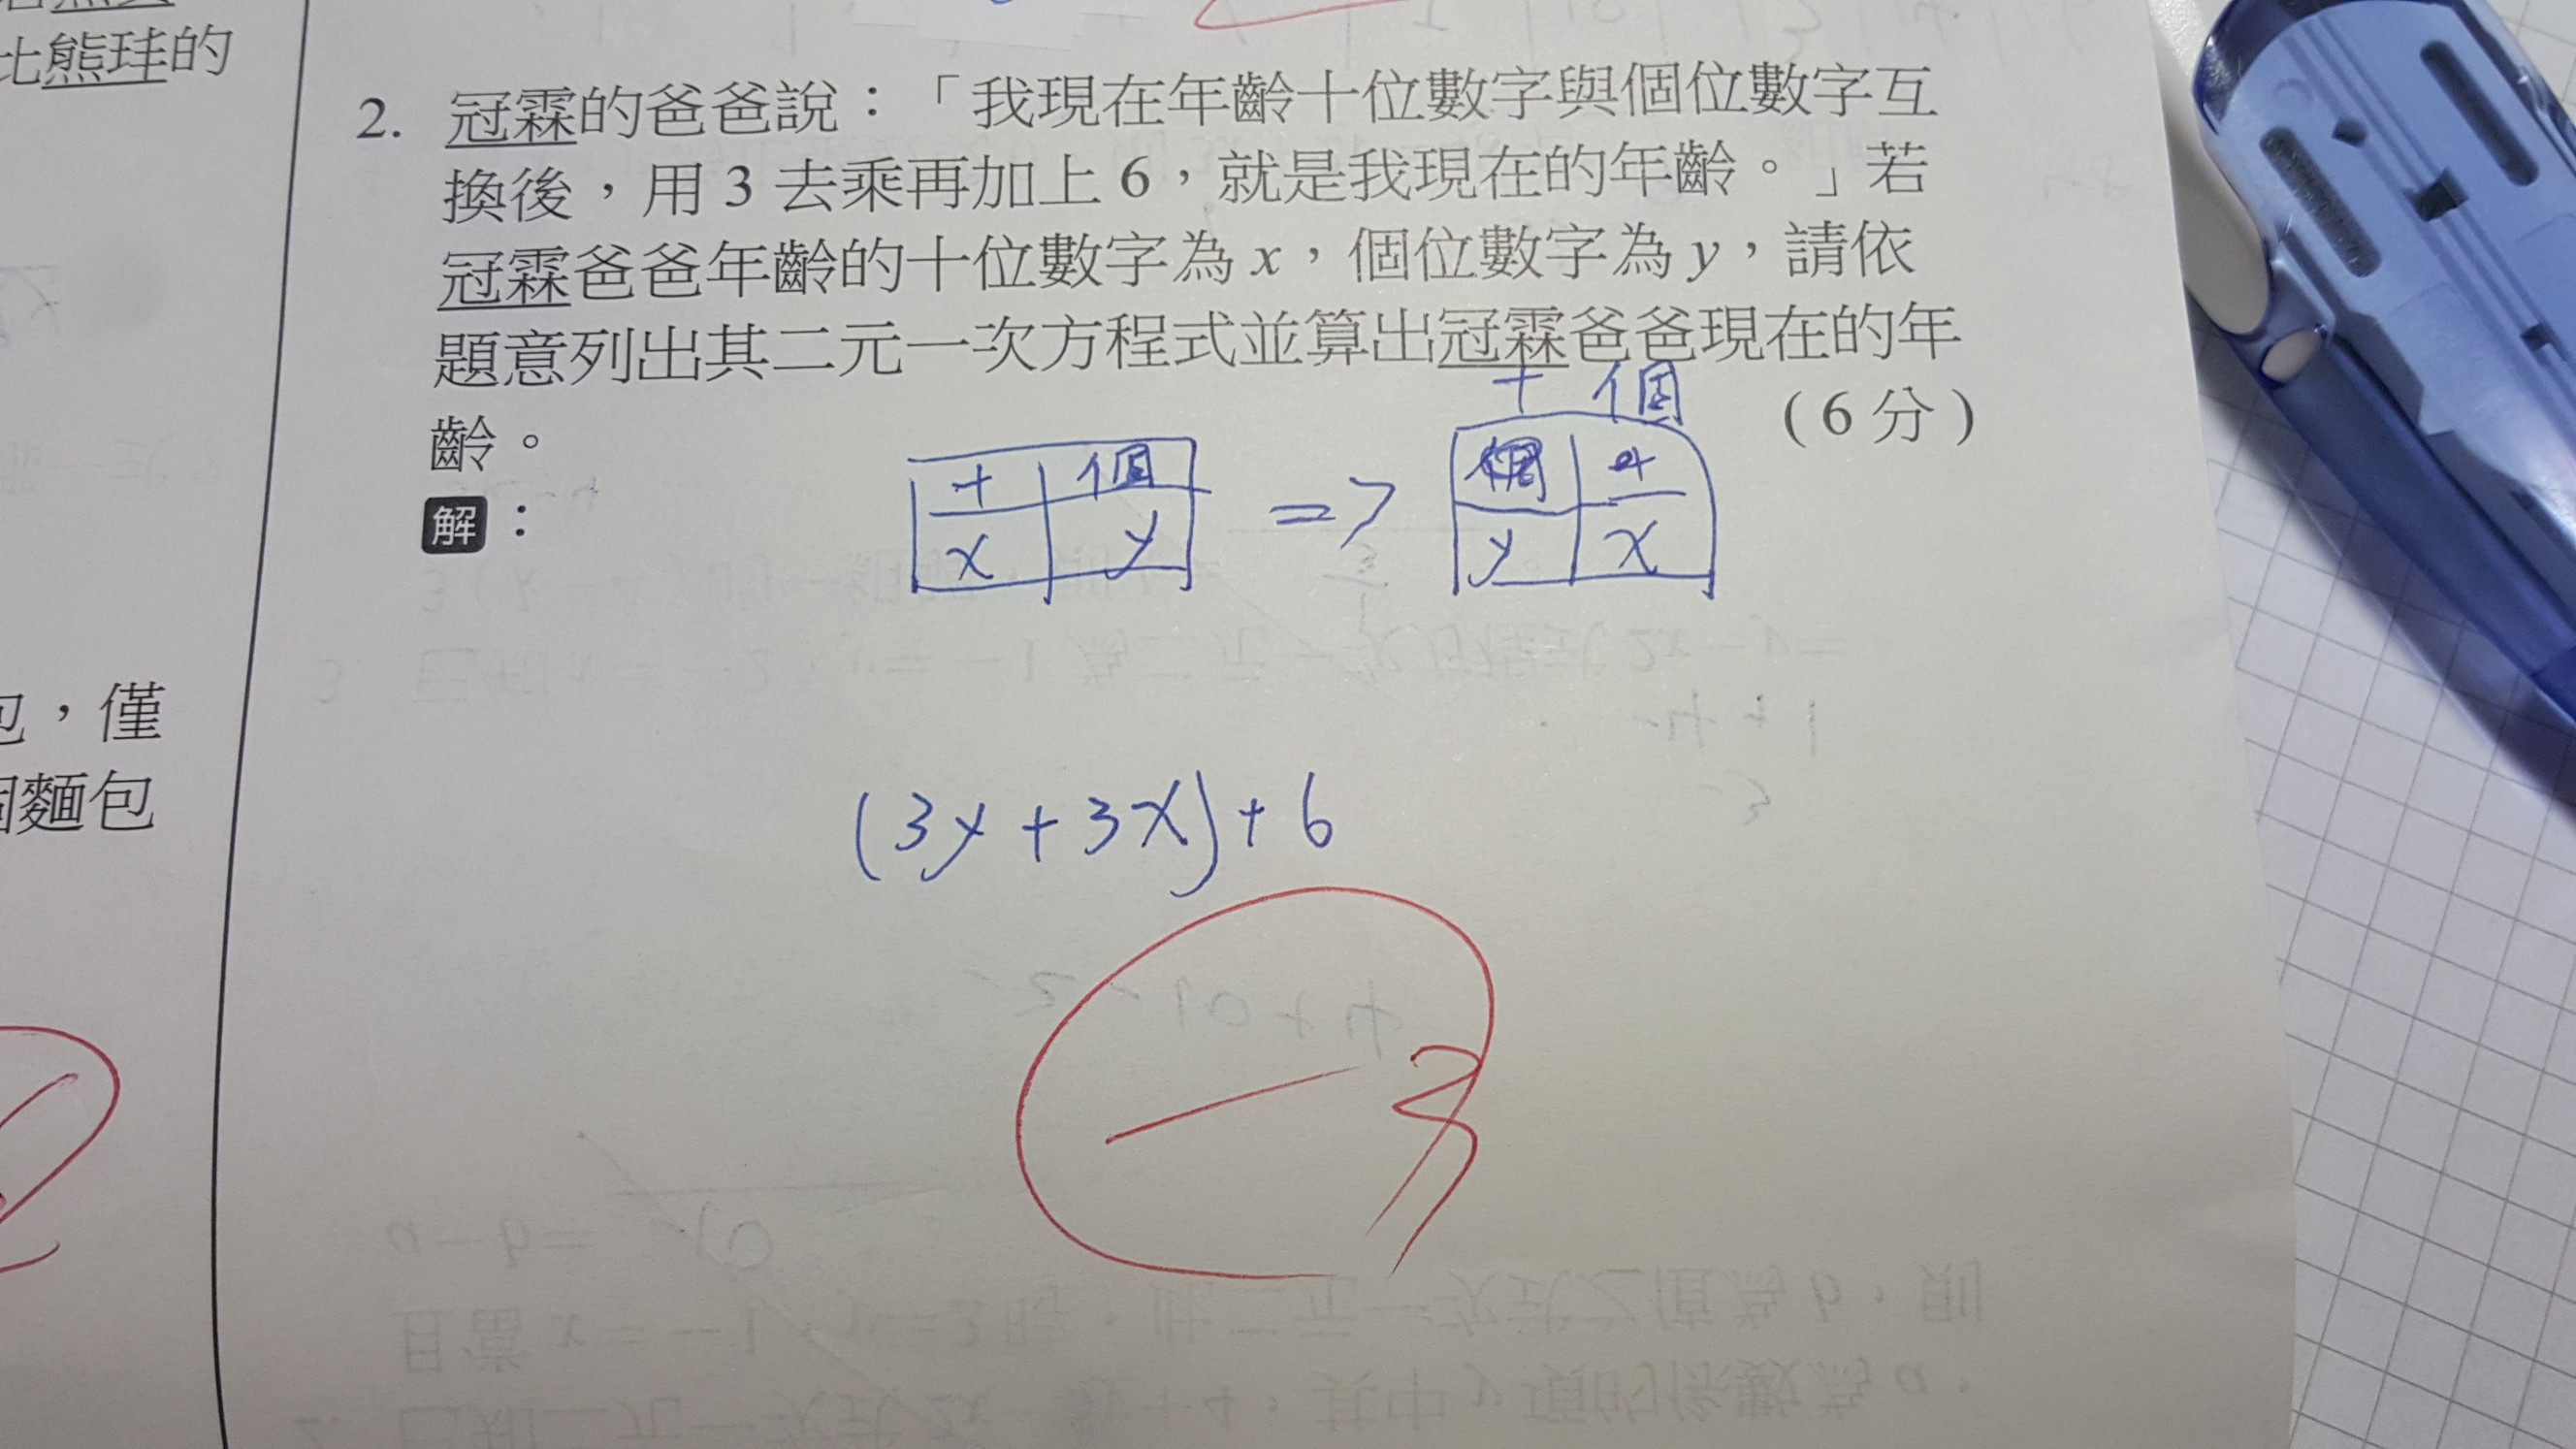 比熊珪的
2. 冠霖的爸爸說：「我現在年齡十位數字與個位數字互
換後，用 3 去乘再加上 6，就是我現在的年齡。」若
冠霖爸爸年齡的十位數字為 x，個位數字為 y，請依
題意列出其二元一次方程式並算出冠霖爸爸現在的年
齡。
(6分)
十 個
解：
十 個
=>
x y
y x
包，僅
個麵包
(3y+3x)+6
-3